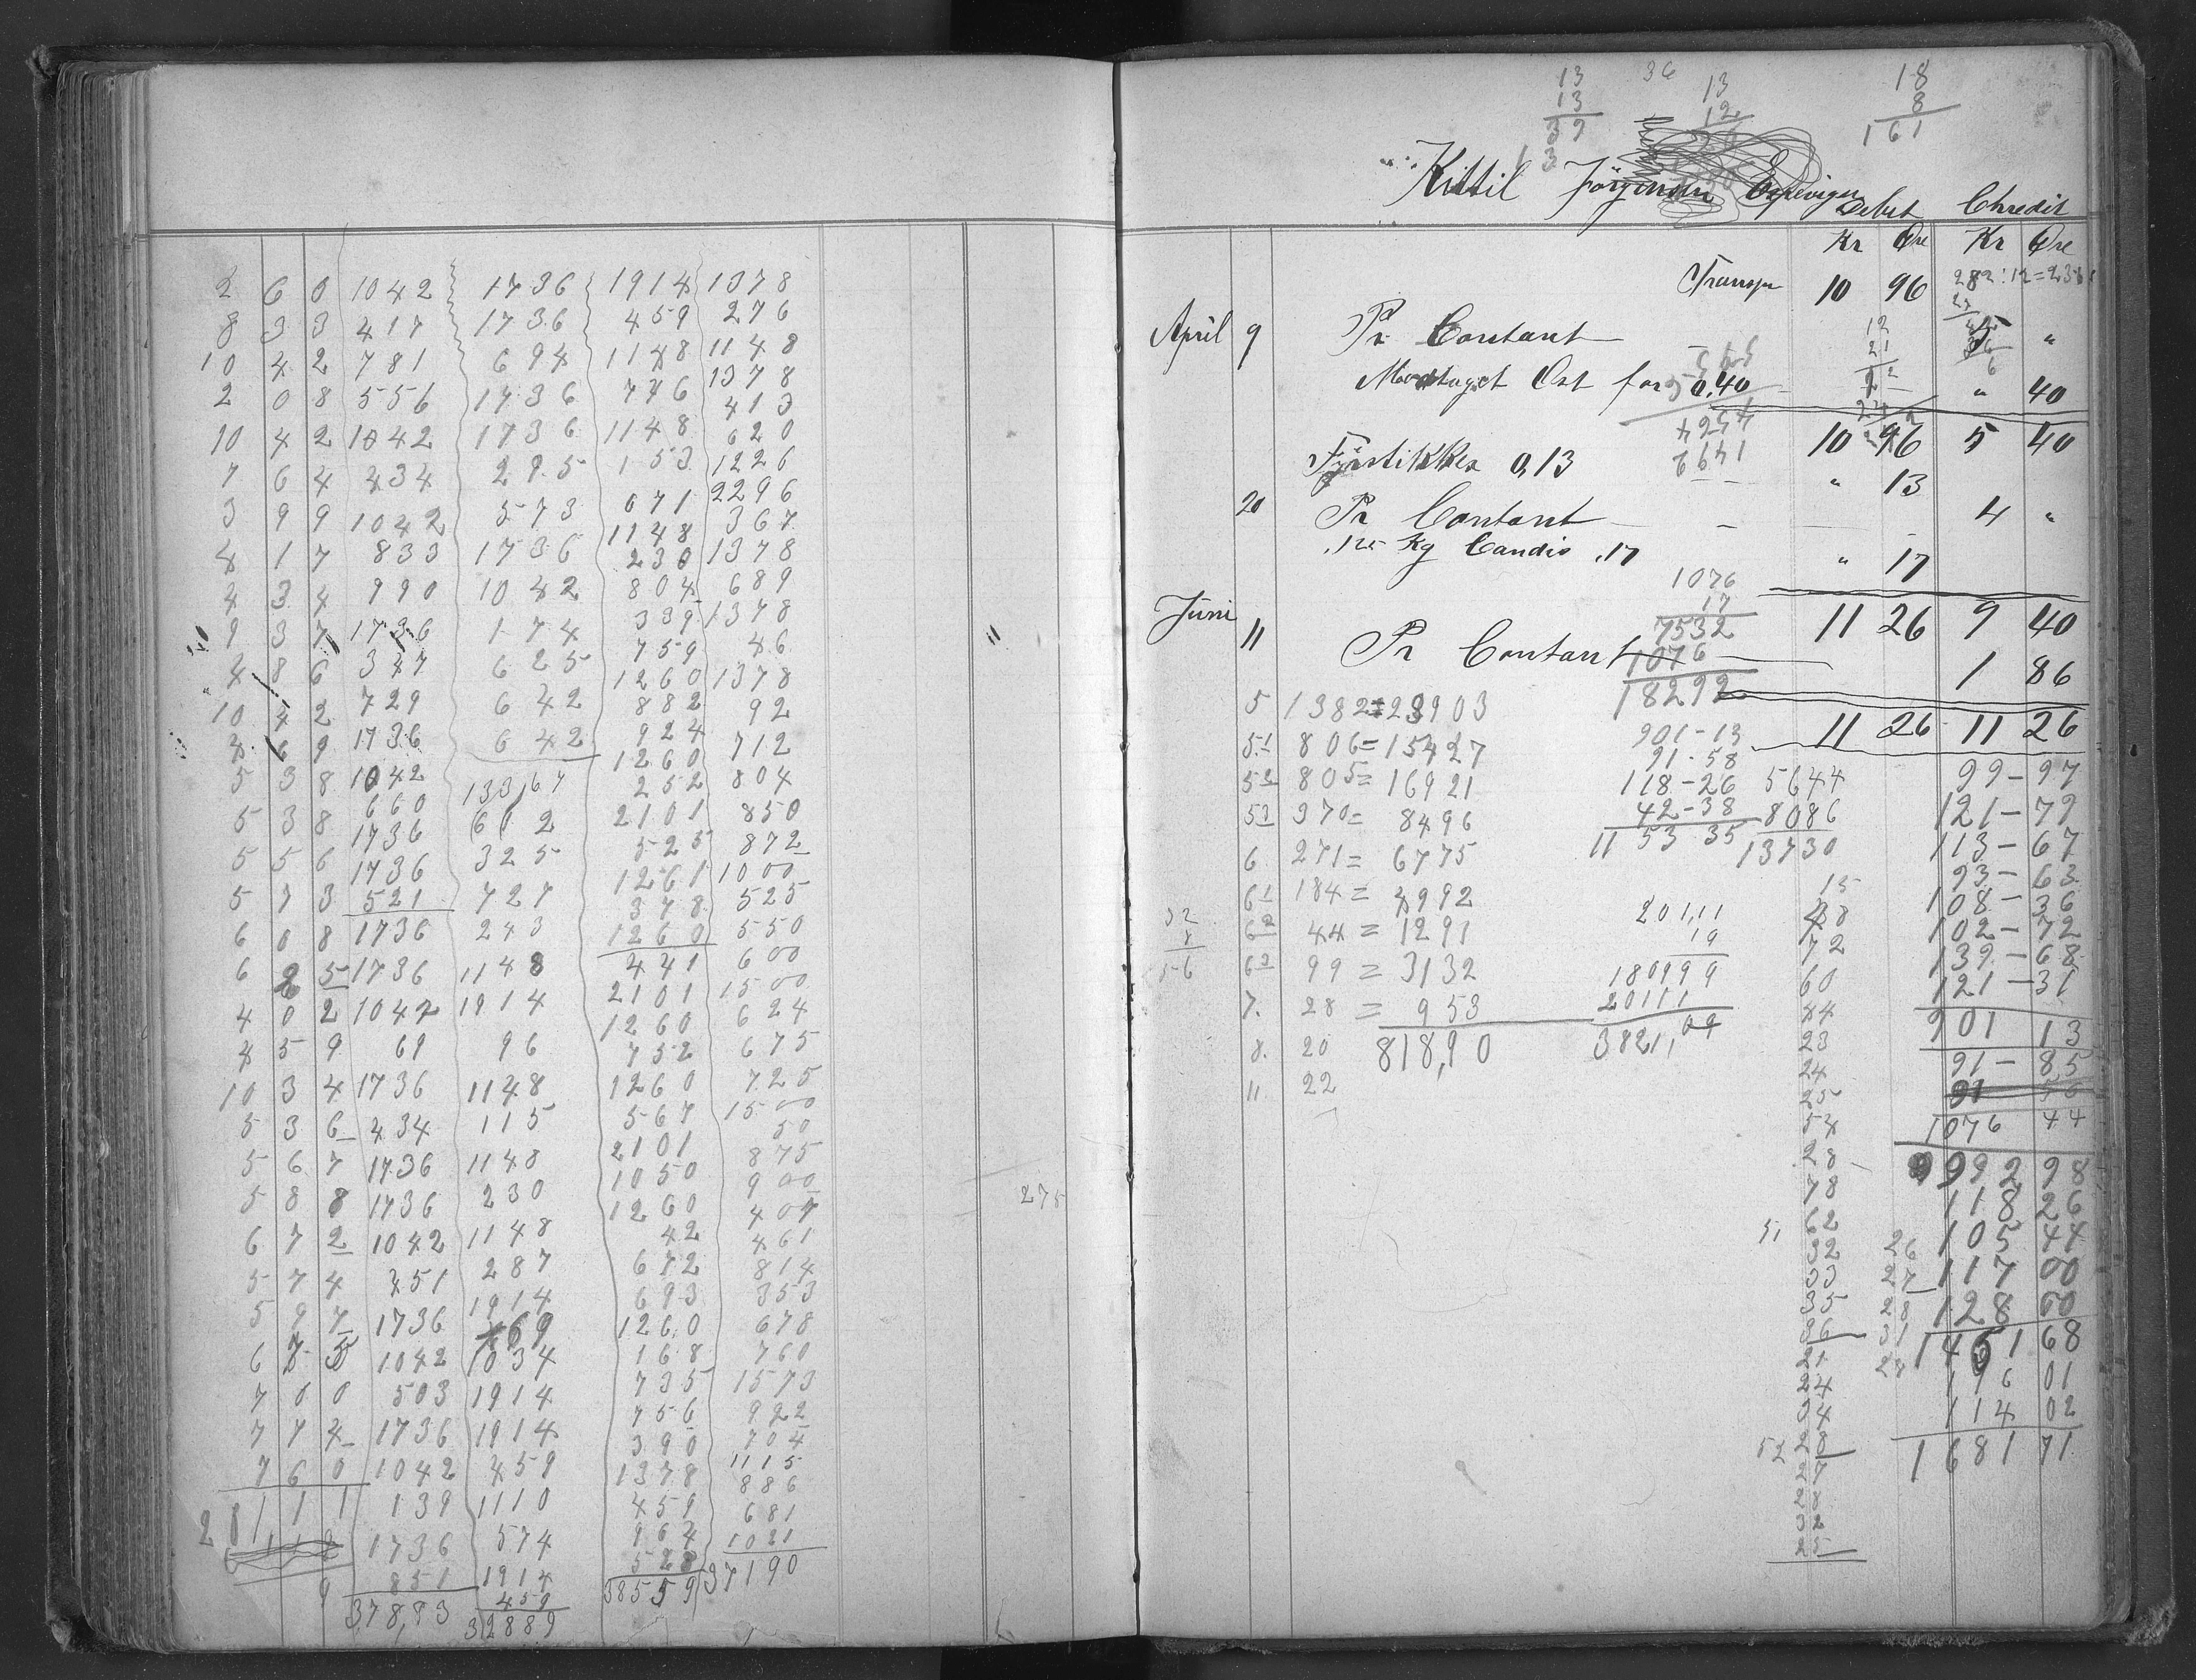 2 6 0 1042 1736 1914 1378
8 3 3 417 1736 459 276
10 4 2 781 694 1148 1148
2 0 8 556 1736 746 1378
10 4 2 1042 1736 1148 413
7 6 4 434 295 153 620
3 9 9 1042 573 671 1226
4 1 7 833 1736 1148 2296
4 3 4 990 1042 230 367
9 3 7 1736 174 804 1378
4 8 6 347 625 339 689
10 4 2 729 642 759 1378
4 6 9 1736 642 1260 46
5 3 8 1042 13367 882 1378
5 3 8 660 612 924 92
5 5 6 1736 325 1260 712
5 7 3 1736 727 252 804
6 0 8 521 243 2101 850
6 2 5 1736 1148 525 872
4 0 2 1736 1914 1261 1000
4 5 9 1042 96 378 525
10 3 4 69 1148 1260 550
5 3 6 1736 115 441 600
5 6 7 434 1148 2101 1500
5 8 8 1736 230 1260 624
6 7 2 1736 1148 752 675
5 7 4 1042 287 1260 725
5 9 7 451 1914 567 1500
6 7 5 1736 769 2101 50
7 0 0 1042 1034 1050 875
7 7 4 503 1914 1260 900
7 6 0 1736 1914 42 407
2 8 1 1 1 1042 459 672 461
139 1110 693 814
1736 574 1260 353
851 1914 168 678
37883 459 735 760
32889 756 1573
390 922
1378 704
459 1115
964 886
528 681
38559 1021
37190
275
13 36 13 18
13 12 8
39 161
Kittil Jörgensen Espevigen Debet Chredit
Kr Øre Kr Øre
Transpr 10 96 282:12=23
April 9 Pr Contant 5 "
Modtaget Ost for 0.40 " 40
10 96 5 40
Fyrstikker 0,13 " 13
20 Pr Contant 4 "
,125 Kg Candis ,17 " 17
1076
17
7532
1076
18292
11 26 9 40
Juni 11 Pr Contant 1 86
11 26 11 26
5 1382=23903
51 806=15427
52 805=16921
53 370= 8496
6 271= 6775
61 184= 4992
62 44=1291
63 99=3132
7. 28= 953
8. 20 818,90
11 22
32
8
56
901-13
91-58
118-26
42-38
1153 35
5644
8086
13730
201,11
19
180999
20111
3821,09
15
48
72
60
44
23
24
25
54
28
78
62
32
33
35
36
21
24
34
28
27
28
32
25
51
52
26
27
28
31
28
99-97
121-79
113-67
93-63
108-36
102-72
139-68
121-31
901 13
91-85
1076 44
992 98
118 26
105 44
117 00
128 60
1451 68
116 01
114 02
1681 71